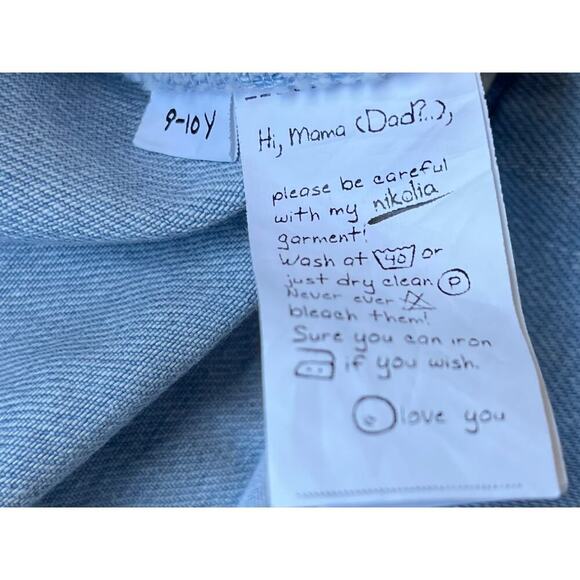 9-10Y
Hi, Mama (Dad?..),
please be careful
with my nikolia
garment!
Wash at 40 or
just dry clean P
Never ever
bleach them!
Sure you can iron
if you wish.
love you